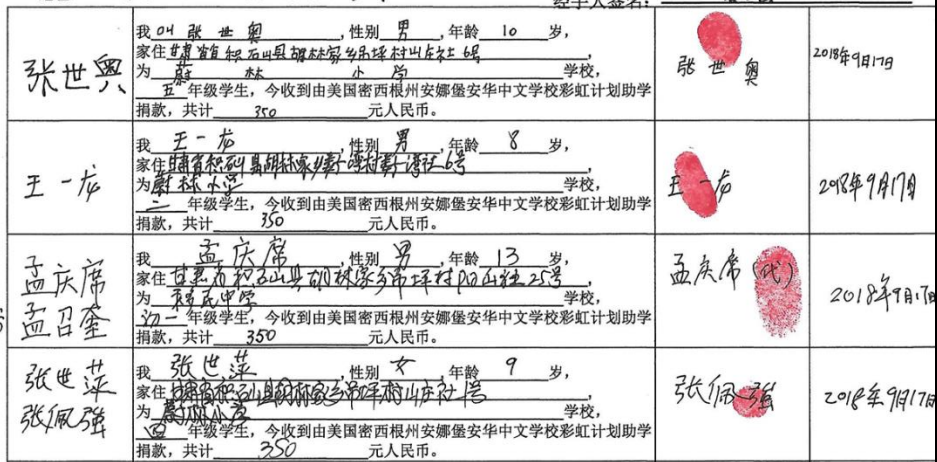 经手人签名：
张世奥
我 04 张世奥，性别 男，年龄 10 岁，
家住甘肃省积石山县胡林家乡吊坪村山庄社 6号，
为 蔚林小学 学校，
五 年级学生，今收到由美国密西根州安娜堡安华中文学校彩虹计划助学
捐款，共计 350 元人民币。
张世奥
2018年9月17日
王一龙
我 王一龙，性别 男，年龄 8 岁，
家住甘肃省积石山县胡林家乡 湾村 湾社6号
为 蔚林小学 学校，
二 年级学生，今收到由美国密西根州安娜堡安华中文学校彩虹计划助学
捐款，共计 350 元人民币。
王一龙
2018年9月17日
孟庆席
孟召奎
我 孟庆席，性别 男，年龄 13 岁，
家住甘肃省积石山县胡林家乡吊坪村 山社25号
为 移民中学 学校，
初二 年级学生，今收到由美国密西根州安娜堡安华中文学校彩虹计划助学
捐款，共计 350 元人民币。
孟庆席(代)
2018年9月17日
张世萍
张佩强
我 张世萍，性别 女，年龄 9 岁，
家住甘肃省积石山县胡林家乡吊坪村山庄社1号
为 蔚林小学 学校，
四 年级学生，今收到由美国密西根州安娜堡安华中文学校彩虹计划助学
捐款，共计 350 元人民币。
张佩强
2018年9月17日